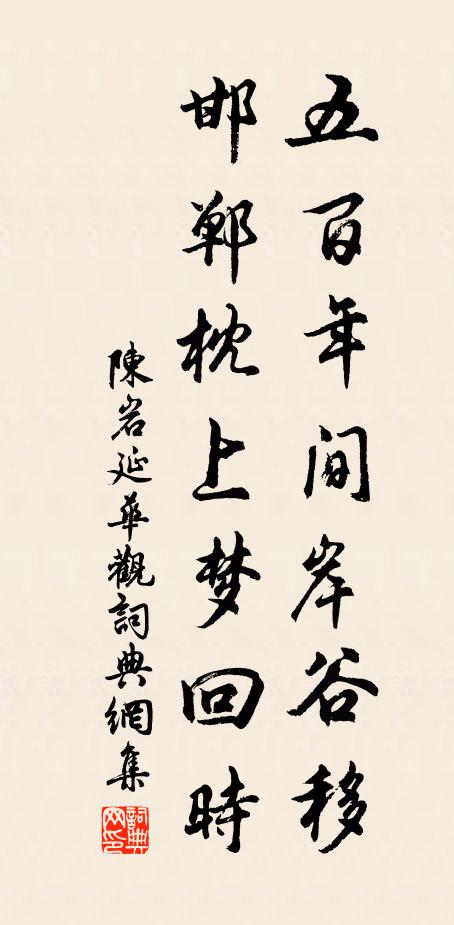 五百年间岸谷移
邯郸枕上梦回時
陳岩延華觀詞典網集
詞典網印